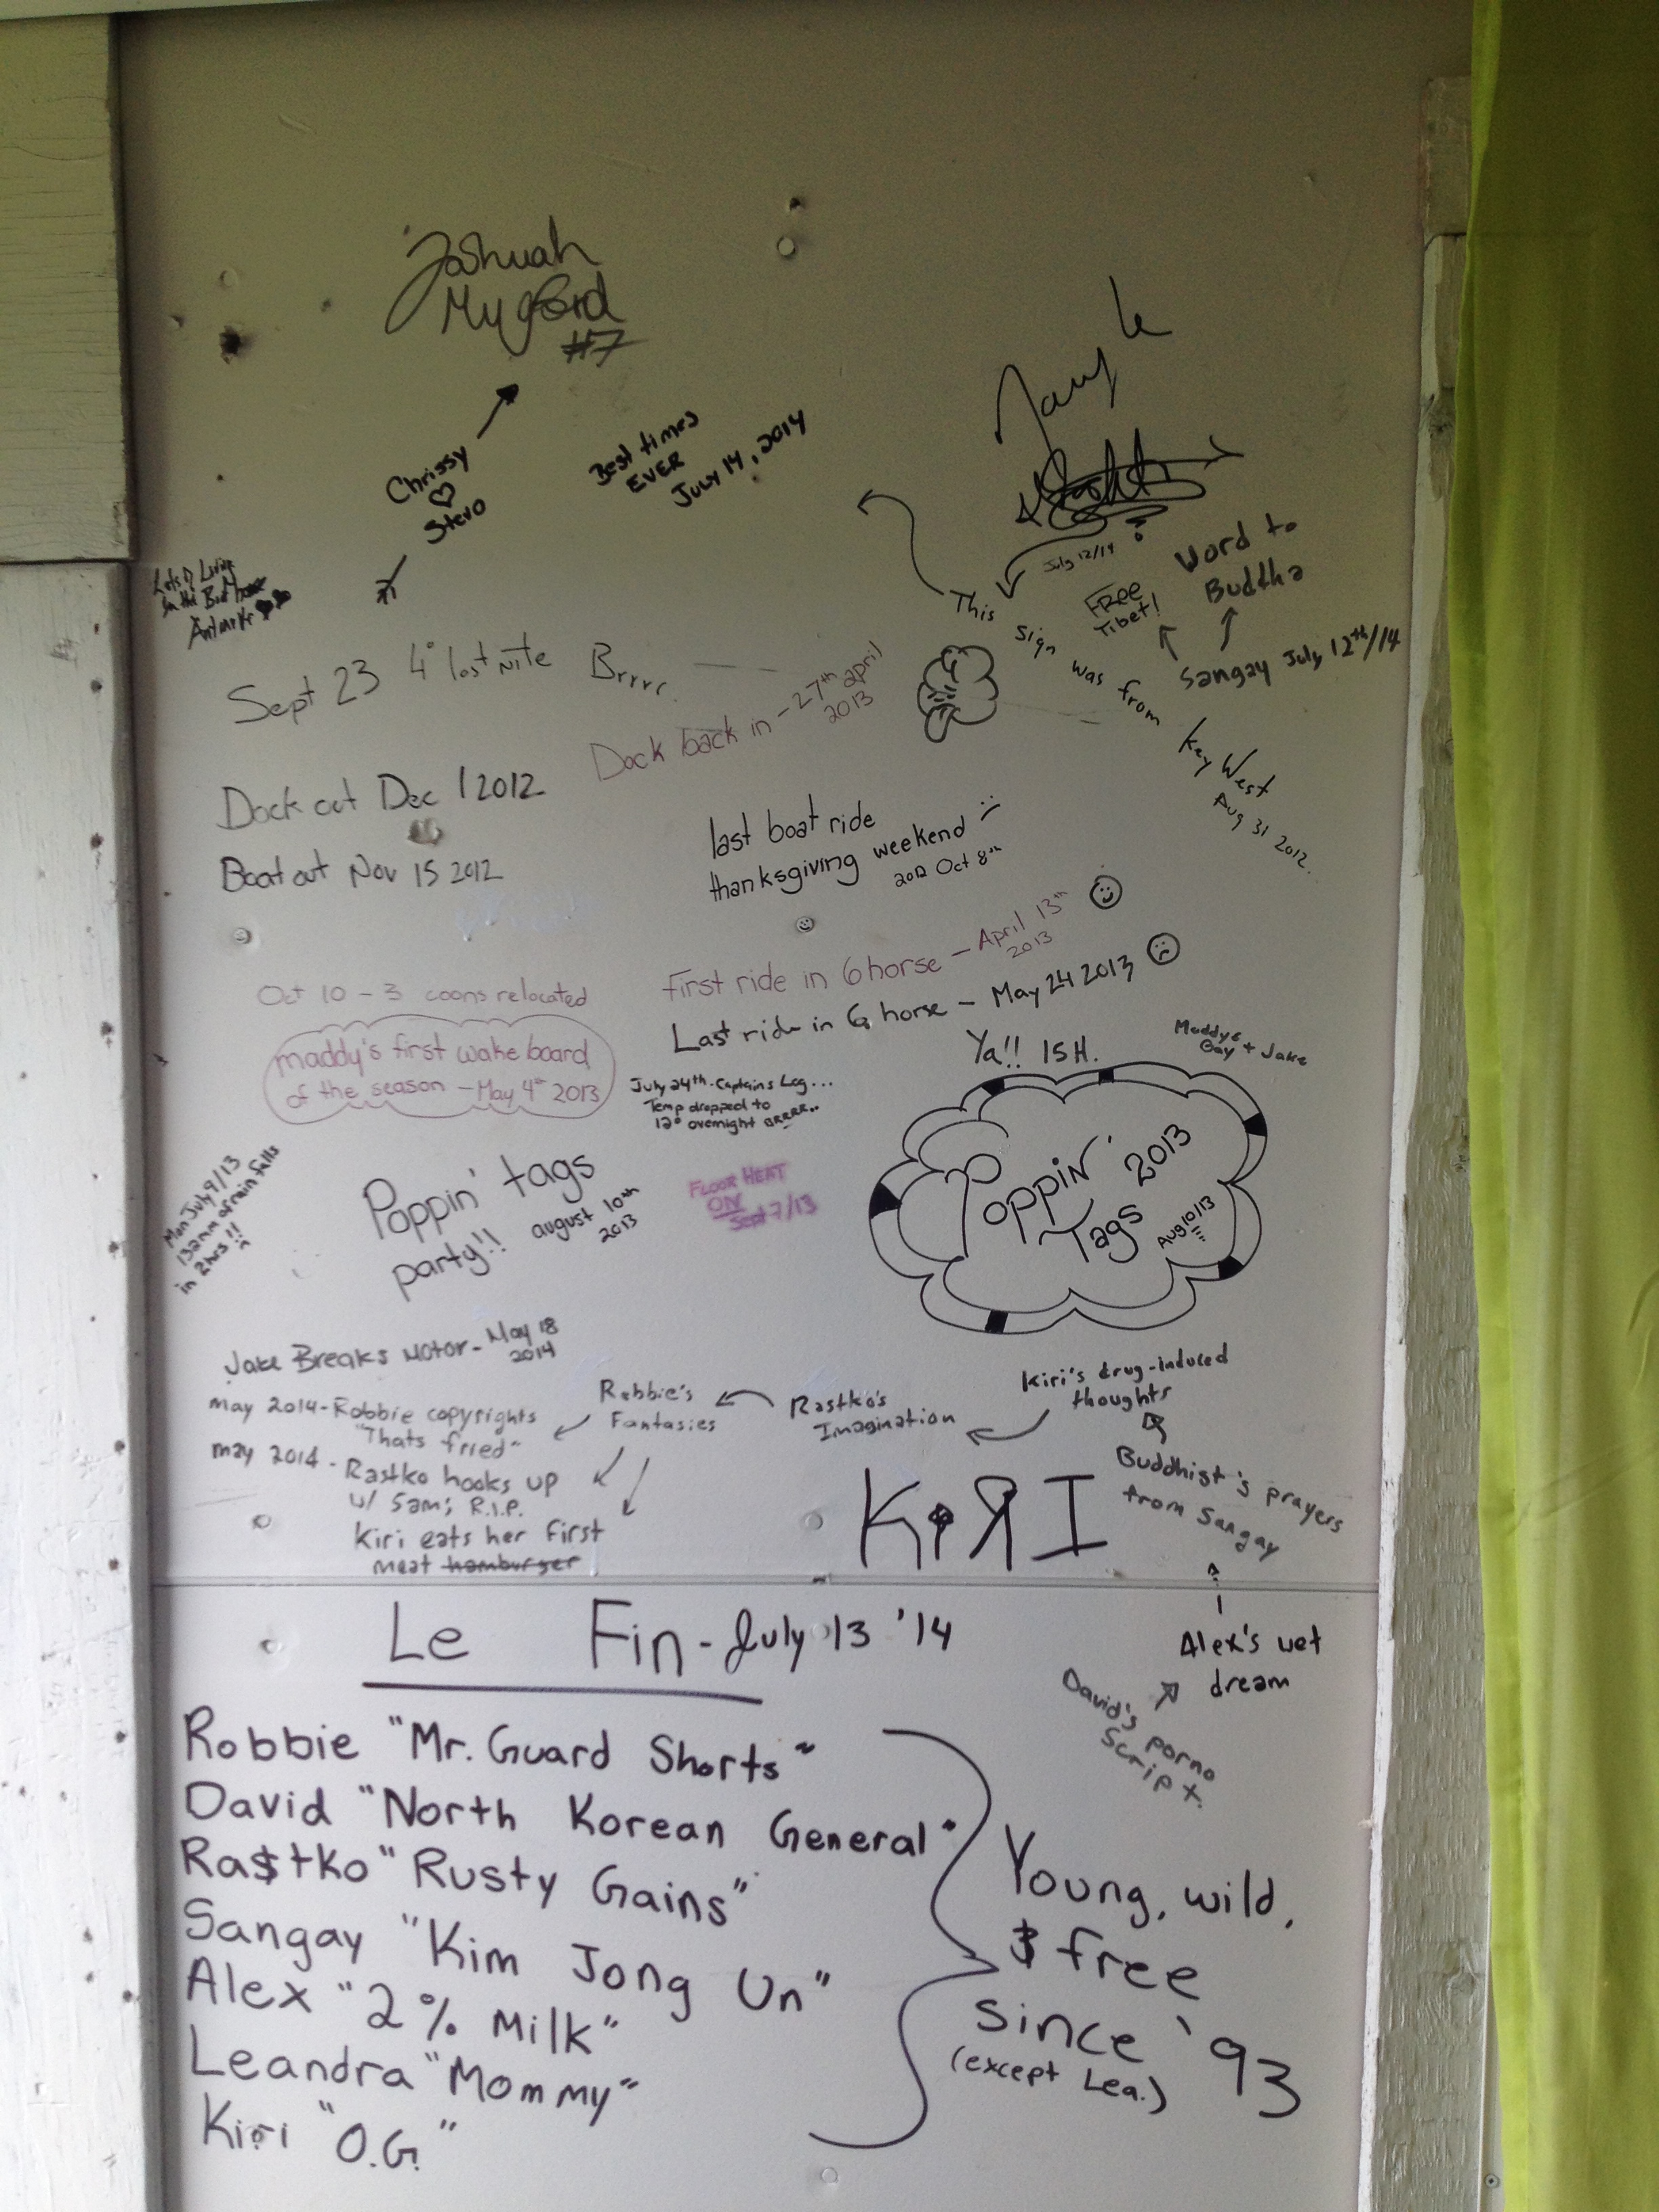 Joshuah
Mugford
#7
Chrissy
Stevo
Best times
EVER
July 14, 2014
July 12/14
Word to
Buddha
FREE
Tibet!
Sangay July 12th/14
This sign was from Key West
Aug 31 2012.
Living
in the
Sept 23 4° last nite Brrrr
Dock back in - 27th april
2013
Dock out Dec 1 2012
Boat out Nov 15 2012
last boat ride
thanksgiving weekend :(
2012 Oct 8th
First ride in 6 horse - April 13th
2013
Last ride in 6 horse - May 24 2013
Ya!! 15H.
+ Jake
Oct 10 - 3 coons relocated
maddy's first wake board
of the season - May 4th 2013
July 24th - Captains Log...
Temp dropped to
12° overnight BRRRR..
Mon July 9/13
132mm of rain falls
in 2hrs !!
Poppin' tags
party!!
august 10th
2013
FLOOR HEAT
ON
Sept 7/13
Poppin' 2013
Tags
Aug 10/13
Jake Breaks Motor - May 18
2014
may 2014 - Robbie copyrights
"Thats fried"
may 2014 - Rastko hooks up
w/ Sam; R.I.P.
Kiri eats her first
meat hamburger
Robbie's
Fantasies
Rastko's
Imagination
Kiri's drug-induced
thoughts
Buddhist's prayers
from Sangay
KiЯI
Le Fin - July 13 '14
Alex's wet
dream
David's porno
Script.
Robbie "Mr. Guard Shorts"
David "North Korean General"
Ra$tko "Rusty Gains"
Sangay "Kim Jong Un"
Alex "2% Milk"
Leandra "Mommy"
Kiri "O.G."
Young, wild,
$ free
since '93
(except Lea.)